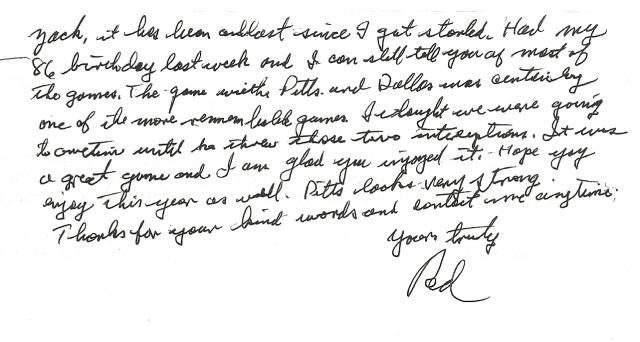 Yack, it has been a blast since I got started. Had my
86 birthday last week and I can still tell you of most of
the games. The game with Pitts. and Dallas was certainly
one of the more remembable games. I thought we were going
to overtime until he threw those two interceptions. It was
a great game and I am glad you injoyed it. Hope you
enjoy this year as well. Pitts looks very strong.
Thanks for your kind words and contact me anytime.
Yours truly
Red